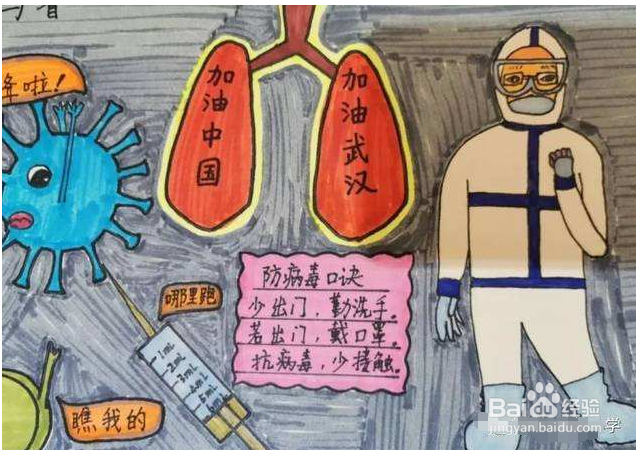 与者
啦！
加油中国
加油武汉
哪里跑
防病毒口诀
少出门，勤洗手。
若出门，戴口罩。
抗病毒，少接触。
1mL
2mL
3mL
4mL
5mL
6mL
瞧我的
Baidu经验
jingyan.baidu.com
学